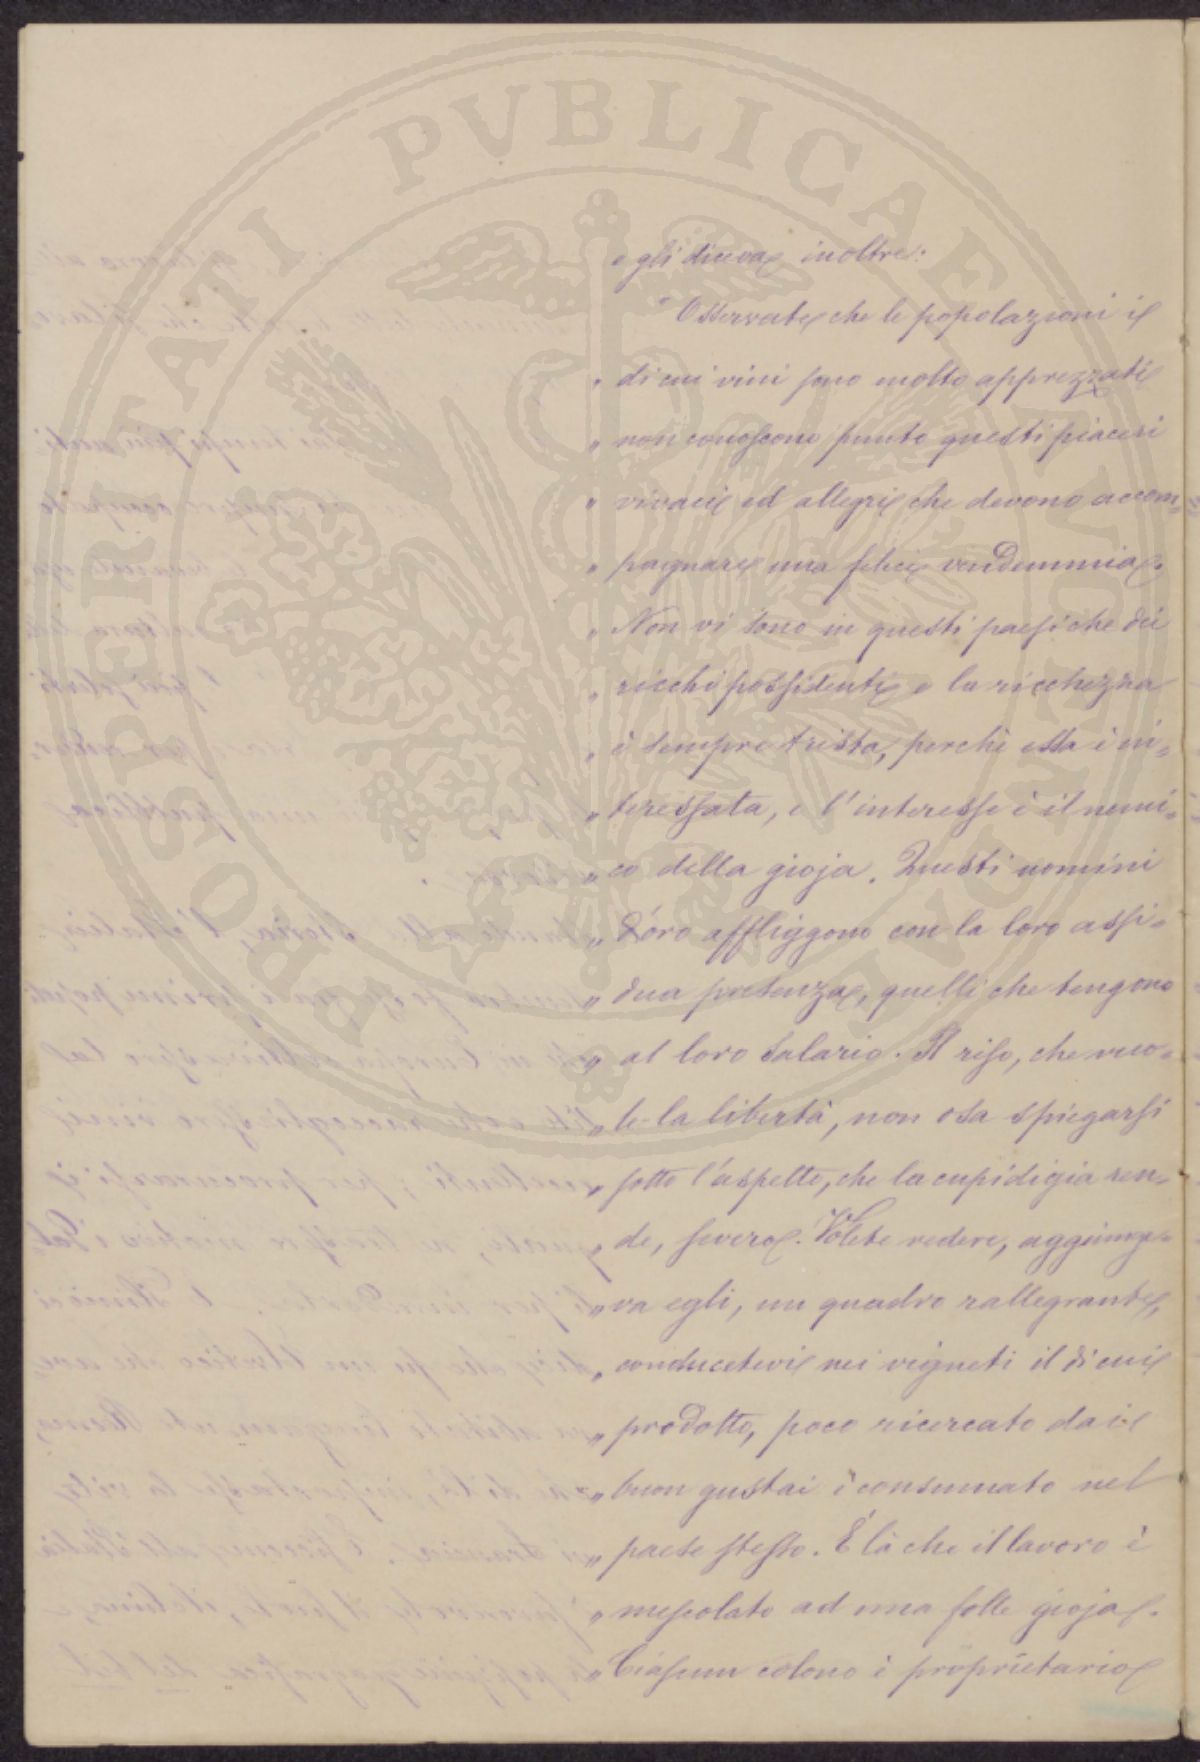 PROSPERITATI PVBLICAE AVGENDAE
egli diceva inoltre:
"Osservate che le popolazioni il
„ di cui vini sono molto apprezzati
„ non conoscono punto questi piaceri
„ vivaci ed allegri che devono accom-
„ pagnare una felice vendemmia.
„ Non vi sono in questi paesi che dei
„ ricchi possidenti e la ricchezza
„ è sempre trista, perchè essa è in-
„ teressata, e l'interesse è il nemi-
„ co della gioja. Questi uomini
„ d'oro affliggono con la loro assi-
„ dua presenza, quelli che tengono
„ al loro salario. Il riso, che vuo-
„ le la libertà, non osa spiegarsi
„ sotto l'aspetto, che la cupidigia ren-
„ de, severo. Volete vedere, aggiunge-
„ va egli, un quadro rallegrante,
„ conducetevi nei vigneti il di cui
„ prodotto, poco ricercato dai
„ buon gustai è consumato nel
„ paese stesso. È là che il lavoro è
„ mescolato ad una folle gioja.
„ Ciascun colono è proprietario